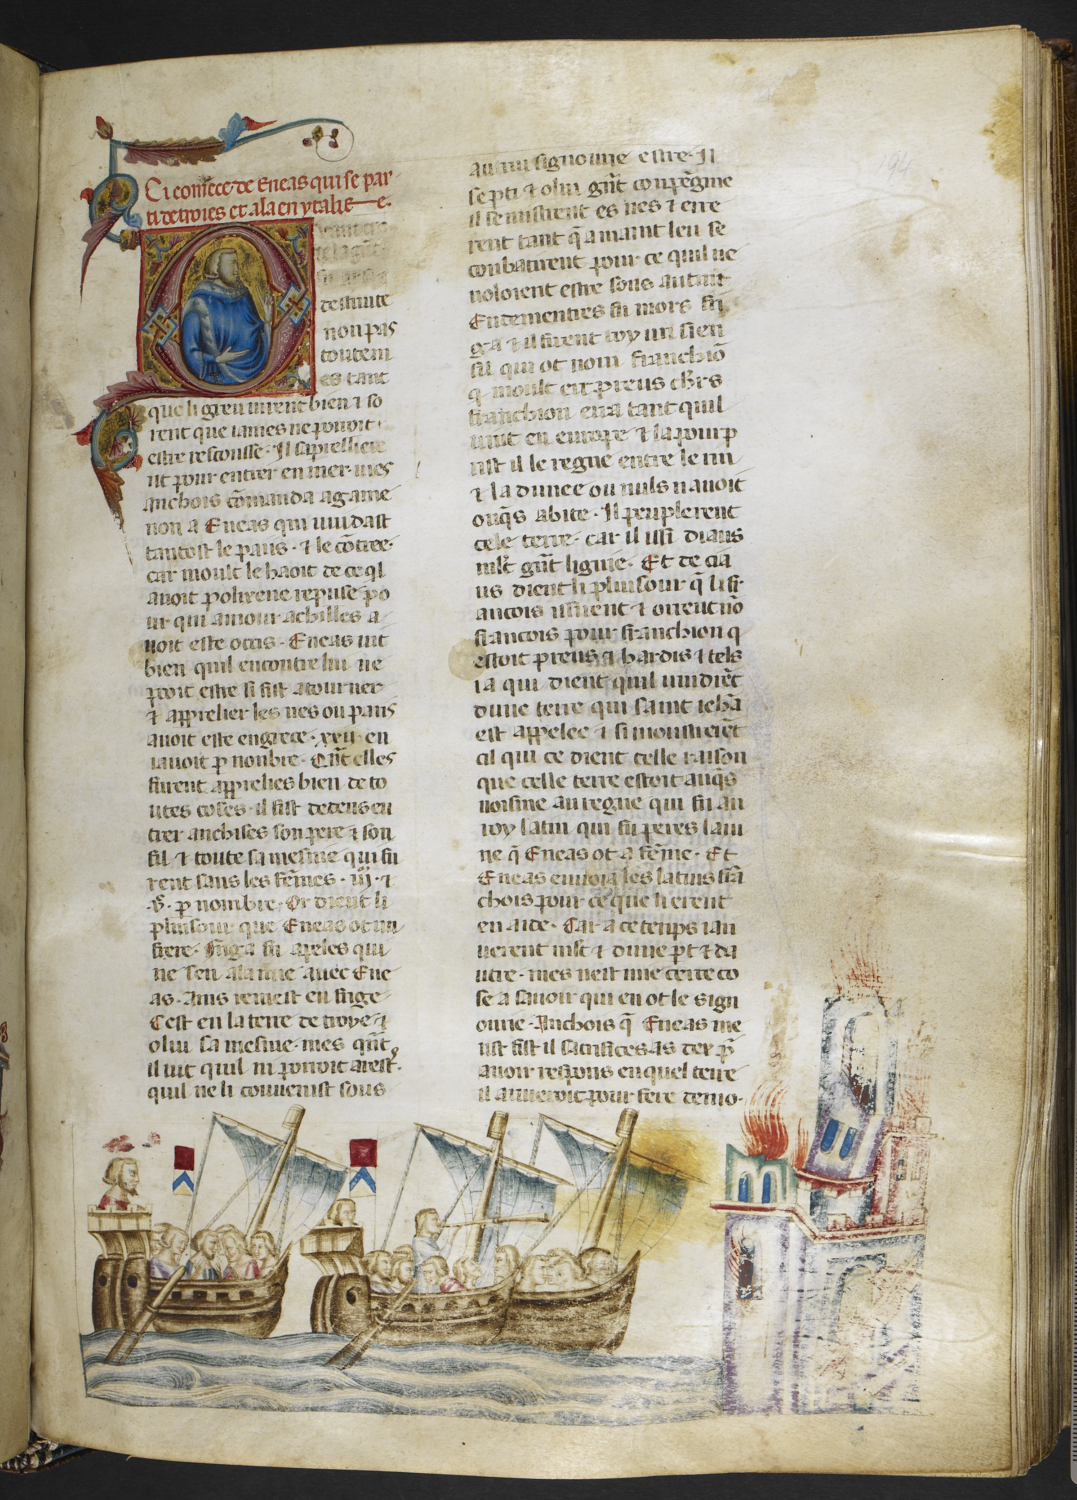 Ci comece de Eneas qui se par
ti de troies et ala en ytalie
destruite
non pas
toutem
es tant
que li greu vinrent bien ⁊ so
rent que iames ne pouoit
estre rescousse. Il saparellierē
nt pour entrer en mer. mes
anchois cōmanda agame
non a Eneas qui vuidast
tantost le pais. ⁊ le cōtree.
car moult le haoit de ce ql
auoit polixene repuse po
ur qui amour achilles a
uoit este occis. Eneas vit
bien quil encontre lui ne
pooit estre si fist atourner
⁊ apprelier les nes ou paris
auoit este en grece. xxii. en
iauoit p nonbre. Qn̄t elles
furent apprelies bien de to
utes coses. il fist dedens en
trer anchises son pere ⁊ son
fil ⁊ toute sa mesnie qui fu
rent sans les fēmes. iij. ⁊
p nonbre. Or dient li
pluisour que Eneas ot un
frere. friga fu apeles qui
ne sen ala mie auec Ene
as. Ains remest en frige
Cest en la terre de troye ⁊
o lui sa mesnie. mes qn̄t
il vit quil ni pouoit arest.
quil ne li conuenist sous
autrui signourie estre. Il
se pti ⁊ o lui grāt conpēgnie
il se misrent es nes ⁊ erre
rent tant q̄ a maint leu se
conbatirent pour ce quil ne
uoloient estre sous autrui
Endementies fu mors fri
ga ⁊ il firent roy un sien
fil qui ot nom franchiō
q moult ert preus ch'rs
franchion erra tant quil
vint en europe ⁊ la pourp
rist il le regne entre le rin
⁊ la dunoe ou nuls nauoit
onq̄s abite. Il peuplerent
cele terre. car il issi dians
mlt' grāt lignie. Et de cia
us dient li pluisour q̄ li fr
ancois issirent ⁊ orrent nō
francois pour franchion q
estoit preus ⁊ hardis ⁊ tels
i a qui dient quil vindrēt
dune terre qui saint iehā
est appelee ⁊ si monstrerēt
cil qui ce dient celle raison
que celle terre estoit auq̄s
uoisine au regne qui fu au
roy latin qui fu peres laui
ne q̄ Eneas ot a fēme. Et
Eneas enuoia les latins frā
chois pour ce que li erent
en aide. Car a ce temps ian
uerent mlt' ⁊ dune pt ⁊ da
utre. mes nest mie certe co
se a sauoir qui en ot le sign
ourie. Anchois q̄ Eneas me
ust fist il sacrifices as dex p̄
auoir respons en quel terre
il auueroit pour fere demo.